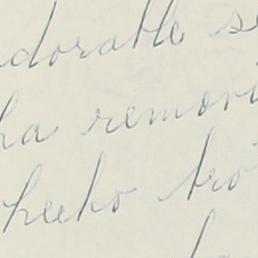 adorable se
ha remori
heeho tro